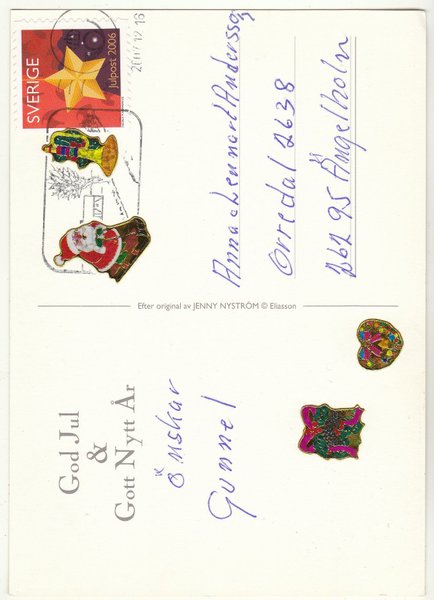 God Jul
&
Gott Nytt År
önskar
Gunnel
Efter original av JENNY NYSTRÖM © Eliasson
SVERIGE
Julpost 2006
Anna o Lennart Andersson
Orredal 2638
262 95 Ängelholm